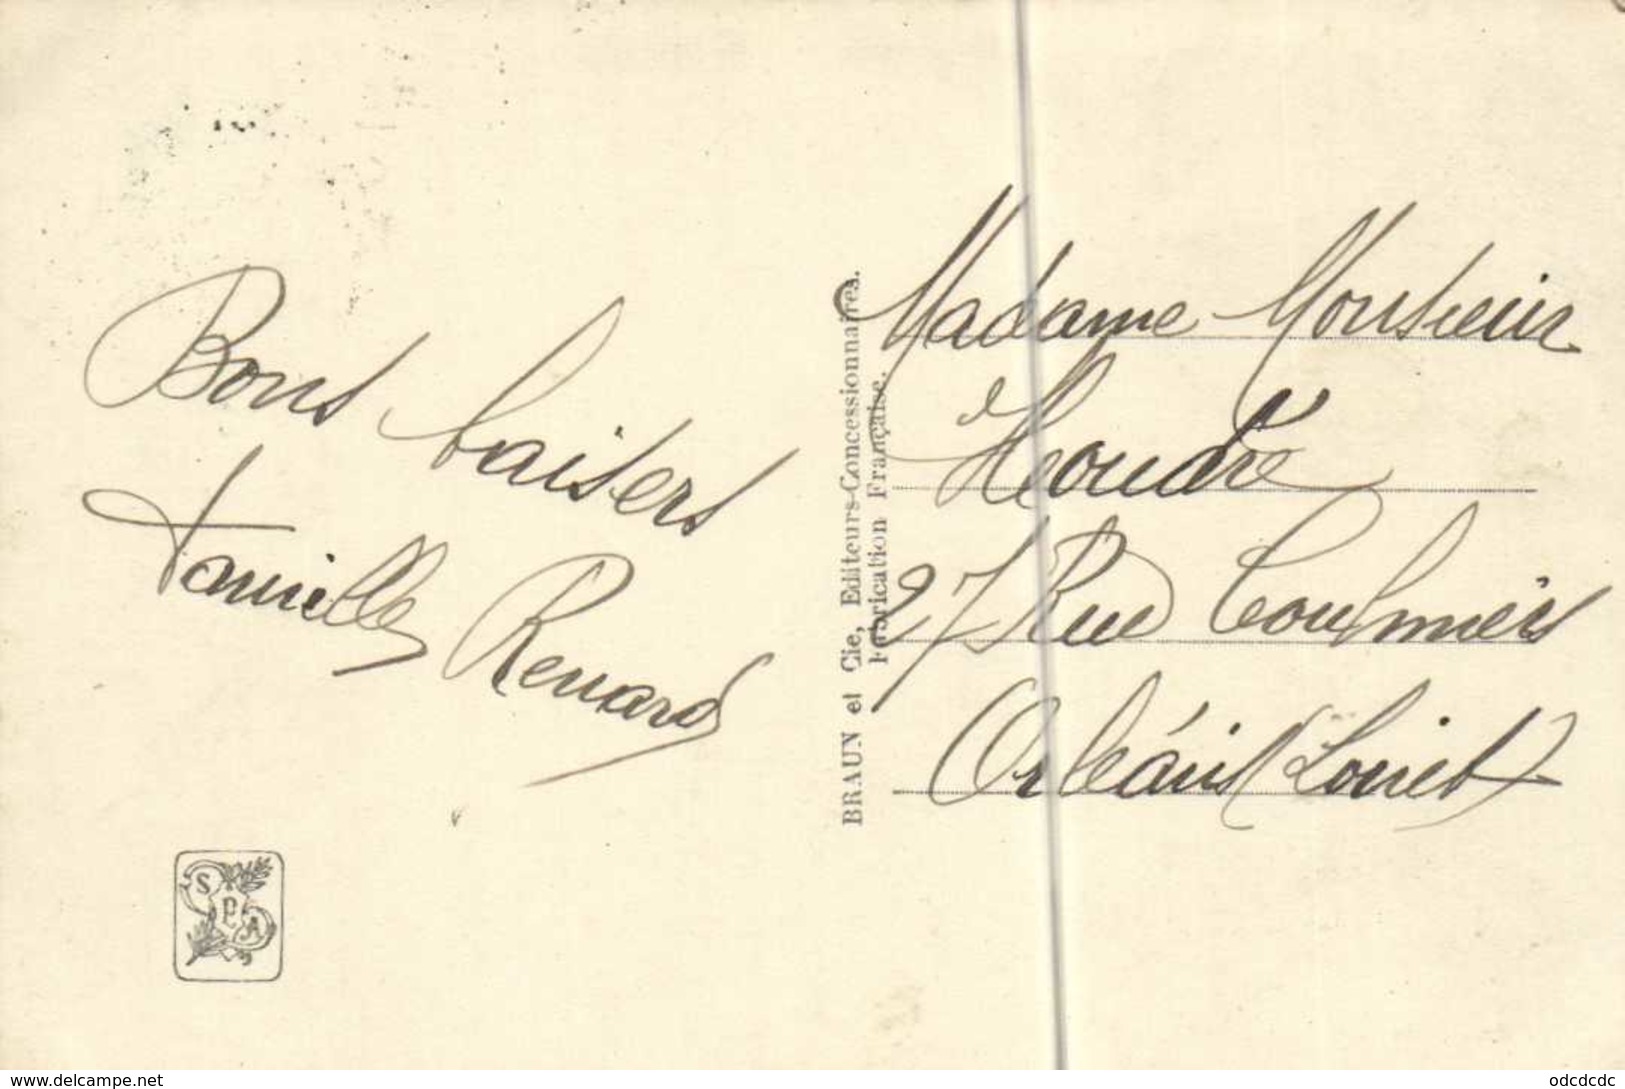 Bons baisers
Famille Renard
BRAUN et Cie, Editeurs-Concessionnaires.
Fabrication Française.
Madame Monsieur
27 Rue Coulmiers
Orléans (Loiret)
S P A
www.delcampe.net
odcdcdc